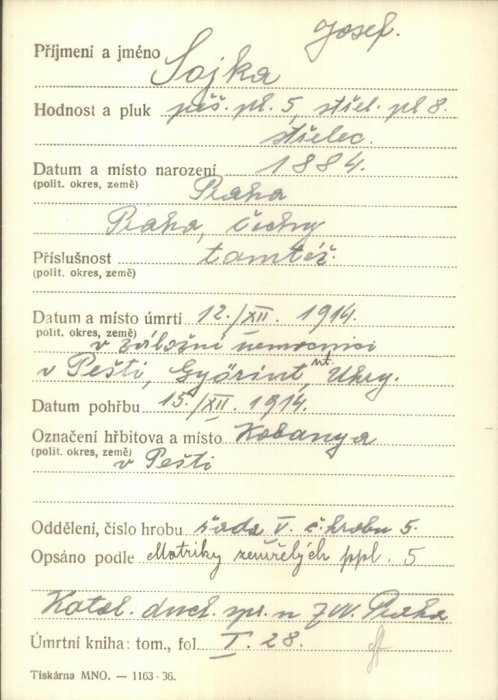 Josef.
Příjmení a jméno Sojka
Hodnost a pluk pěš. pl. 5, střel. pl 8.
střelec.
Datum a místo narození 1884.
(polit. okres, země) Praha
Praha, Čechy
Příslušnost tamtéž.
(polit. okres, země)
Datum a místo úmrtí 12./XII. 1914.
polit. okres, země)
v záložní nemocnici
v Pešti, Győrint, Uhry.
Datum pohřbu 15./XII. 1914.
Označení hřbitova a místo Kobanya
(polit. okres, země) v Pešti
Oddělení, číslo hrobu řada V. č. hrobu 5.
Opsáno podle Matriky zemřelých ppl. 5
Katol. duch. spr. n ZVV. Praha
Úmrtní kniha: tom., fol. I. 28.
Tiskárna MNO. — 1163-36.